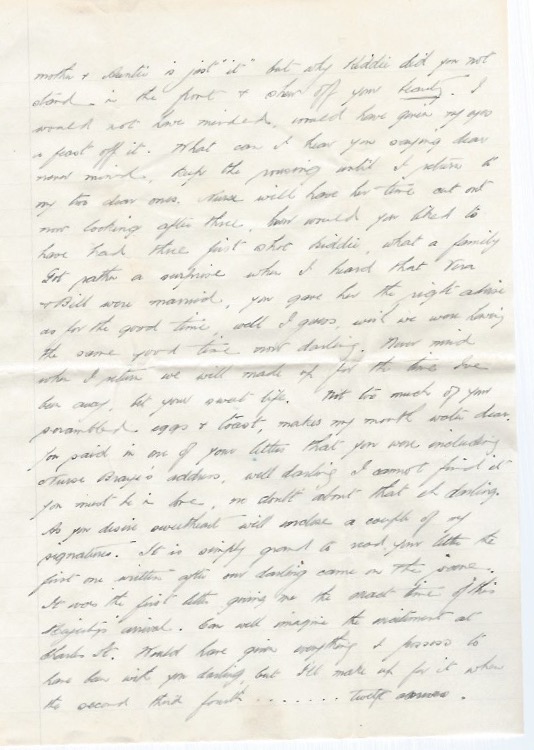 mother & Auntie is just "it" but why Kiddie did you not
stand in the front & show off your beauty. I
would not have minded, would have given my eyes
a feast off it. What can I hear you saying dear
never mind, keep the pouring until I return to
my two dear ones. Nurse will have her time cut out
now looking after three, how would you liked to
have had three first shot Kiddie, what a family
Got rather a surprise when I heard that Vera
& Bill were married, you gave her the right advise
as for the good time, well I guess, wish we were having
the same good time now darling. Never mind
when I return we will made up for the time I've
been away, bet your sweet life. Not too much of your
scrambled eggs & toast, makes my mouth water dear.
You said in one of your letters that you were including
Nurse address, well darling I cannot find it
you must be in love, no doubt about that eh darling.
As you desire sweetheart will enclose a couple of my
signatures. It is simply grand to read your letter the
first one written after our darling came on the scene.
It was the first letter giving me the exact time of his
Majesty's arrival. Can well imagine the excitement at
Charles St. Would have given everything I possess to
have been with you darling, but I'll make up for it when
the second third fourth . . . . . . . . twelth arrives.